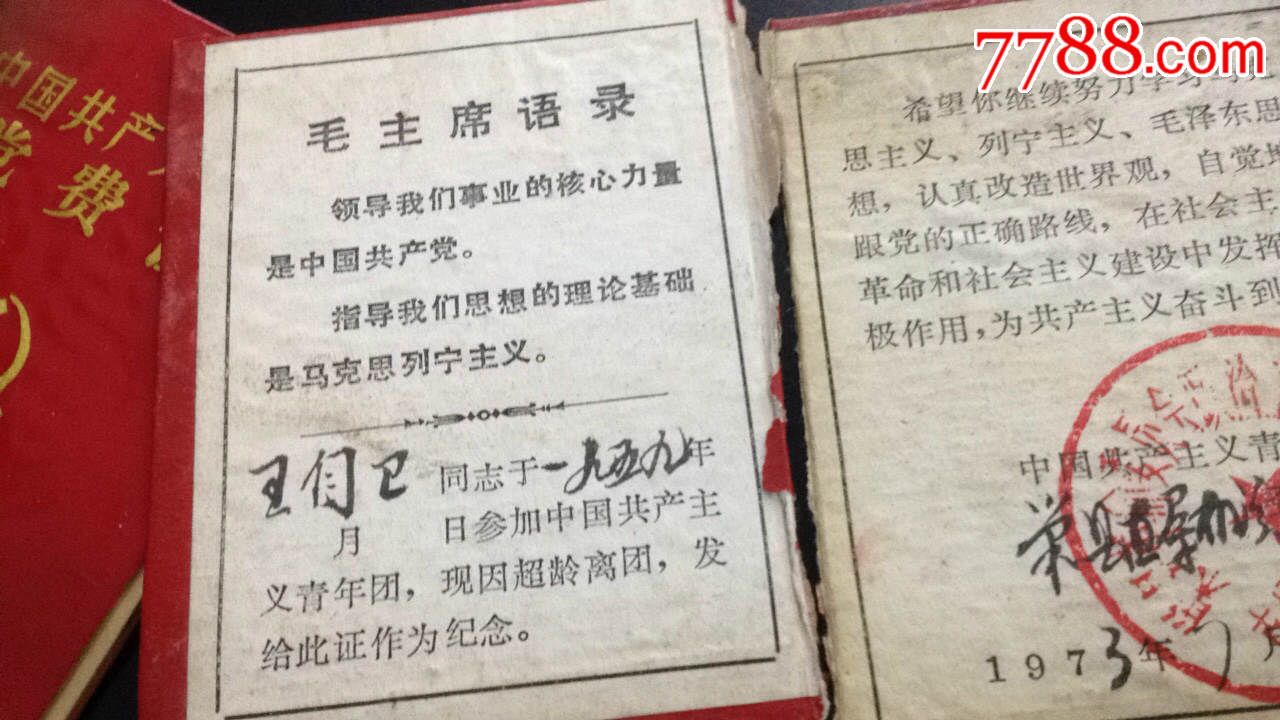 7788.com
中国共产
党费
毛主席语录
领导我们事业的核心力量
是中国共产党。
指导我们思想的理论基础
是马克思列宁主义。
王闩卫 同志于一九五九年
月 日参加中国共产主
义青年团，现因超龄离团，发
给此证作为纪念。
希望你继续努力学习
思主义、列宁主义、毛泽东思
想，认真改造世界观，自觉地
跟党的正确路线，在社会主
革命和社会主义建设中发挥
极作用，为共产主义奋斗到
中国共产主义青
荣县直属机
1973年7月